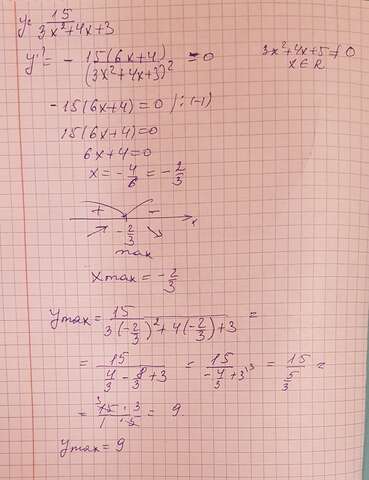 y = 15 / (3x² + 4x + 3)
y' = - 15(6x+4) / (3x²+4x+3)² = 0
3x²+4x+5 ≠ 0
x ∈ R
-15(6x+4) = 0 /:(-1)
15(6x+4) = 0
6x+4 = 0
x = - 4/6 = - 2/3
+ -
- 2/3 x
max
x max = - 2/3
y max = 15 / (3(-2/3)² + 4(-2/3) + 3) =
= 15 / (4/3 - 8/3 + 3) = 15 / (-4/3 + 3) = 15 / (5/3) =
= 15 · 3 / 1 · 5 = 9
y max = 9